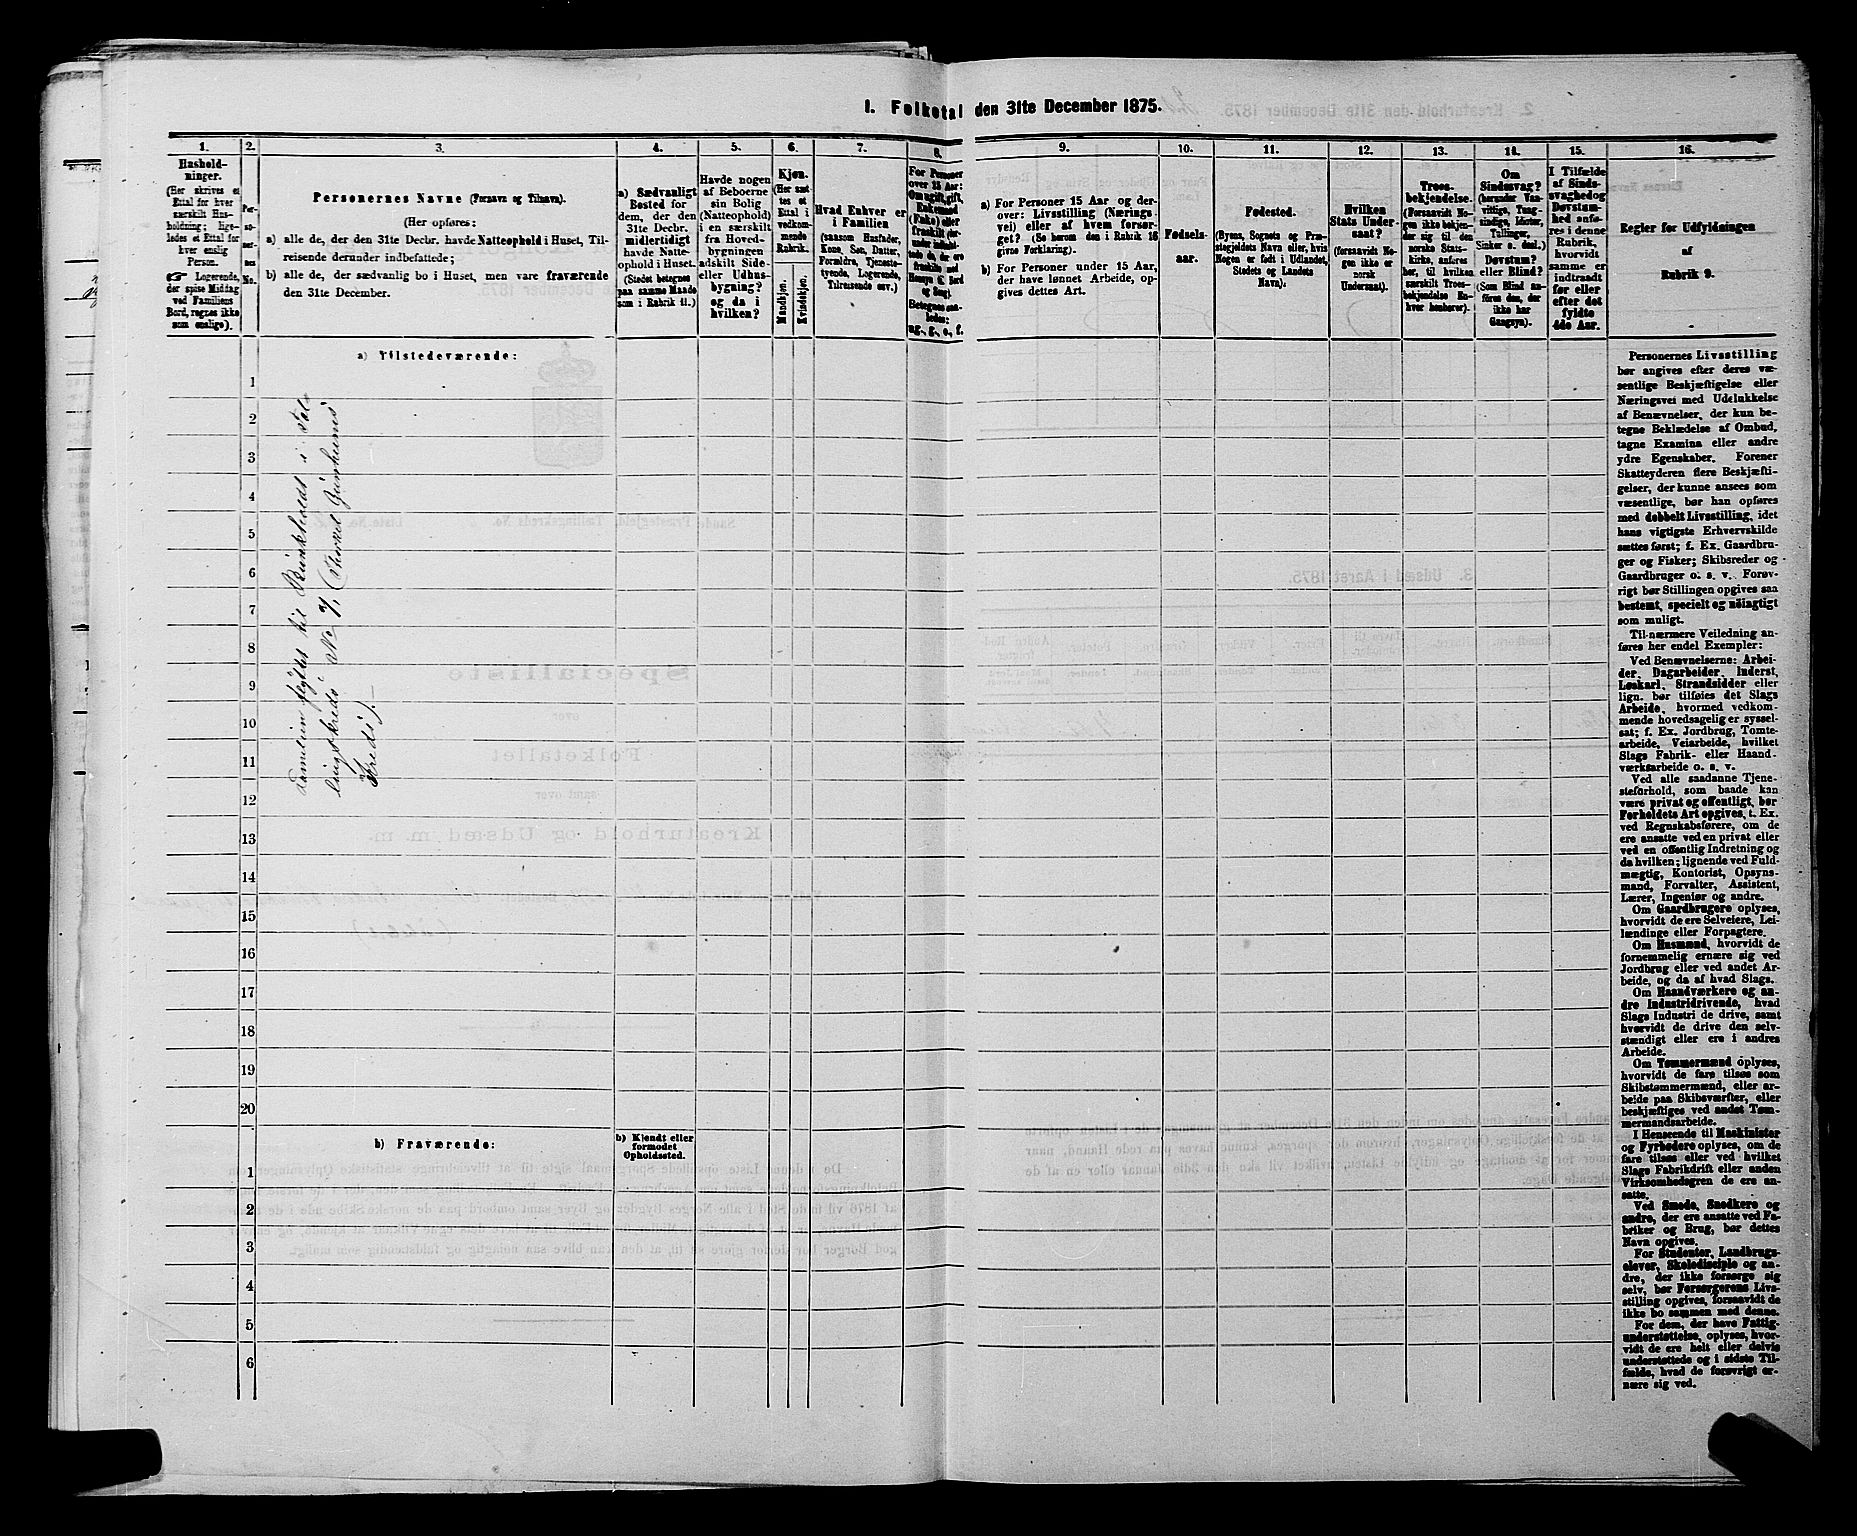 1. Folketal den 31te December 1875.
1.
Husholdninger.
(Her skrives et
Ettal for hver
særskilt Husholdning; ligeledes et Ettal for
hver enslig
Person.
☞ Logerende,
der spise Middag
ved Familiens
Bord, regnes ikke
som enslige).
2.
Personernes
No.
3.
Personernes Navne (Fornavn og Tilnavn).
(Her opføres:
a) alle de, der den 31te Decbr. havde Natteophold i Huset, Tilreisende derunder indbefattede;
b) alle de, der sædvanlig bo i Huset, men vare fraværende
den 31te December.
4.
a) Sædvanligt
Bosted for
dem, der den
31te Decbr.
midlertidigt
havde Natteophold i Huset.
(Stedet betegnes
paa samme Maade
som i Rubrik 11.)
5.
Havde nogen
af Beboerne
sin Bolig
(Natteophold)
i en særskilt
fra Hovedbygningen
adskilt Side-
eller Udhusbygning?
og da i
hvilken?
6.
Kjøn.
(Her sættes et
Ettal i
vedkommende
Rubrik.
Mandkjøn.
Kvindekjøn.
7.
Hvad Enhver er
i Familien
(saasom Husfader,
Kone, Søn, Datter,
Forældre, Tjenestetyende, Logerende,
Tilreisende osv.)
8.
For Personer
over 15 Aar:
Om ugift, gift,
Enkemand
(Enke) eller
fraskilt
Betegnes saaledes:
ug., g., e., f.
9.
a) For Personer 15 Aar og derover: Livsstilling (Næringsvei) eller af hvem forsørget? (Se herom den i Rubrik 16
givne Forklaring).
b) For Personer under 15 Aar,
der have lønnet Arbeide, opgives dettes Art.
10.
Fødselsaar.
11.
Fødested.
(Byens, Sognets og Præstegjeldets Navn eller, hvis
Nogen er født i Udlandet,
Stedets og Landets
Navn).
12.
Hvilken
Stats Undersaat?
(forsaavidt Nogen ikke er
norsk
Undersaat).
13.
Troesbekjendelse.
(Forsaavidt Nogen ikke bekjender sig til den
norske Statskirke, anføres
her, til hvilken
særskilt Troesbekjendelse Enhver henhører).
14.
Om
Sindssvag?
(herunder Vanvittige, Tungsindige, Idioter,
Tullinger,
Sinker o. desl.)
Døvstum?
eller Blind?
(Som Blind anføres den, der
ikke har
Gangsyn).
15.
I Tilfælde
af Sindssvaghed og
Døvstumhed anføres i denne
Rubrik,
hvorvidt
samme er
indtraadt
før eller
efter det
fyldte
4de Aar.
16.
Regler for Udfyldningen
af
Rubrik 9.
a) Tilstedeværende:
1
2
3
4
5
6
7
8
9
10
11
12
13
14
15
16
17
18
19
20
Familien flyttet til
(
Kreds).
b) Fraværende:
b) Kjendt eller
formodt
Opholdssted.
1
2
3
4
5
6
Personernes Livsstilling
bør angives efter deres væsentlige Beskjæftigelse eller
Næringsvei med Udelukkelse
af Benævnelser, der kun betegne Beklædelse af Ombud,
tagne Examina eller andre
ydre Egenskaber. Forener
Skatteyderen flere Beskjæftigelser, der kunne ansees som
væsentlige, bør han opføres
med dobbelt Livsstilling, idet
hans vigtigste Erhvervskilde
sættes først; f. Ex. Gaardbruger og Fisker; Skibsreder og
Gaardbruger o. s. v. Forøvrigt bør Stillingen opgives saa
bestemt, specielt og nøiagtigt
som muligt.
Til nærmere Veiledning anføres her endel Exempler:
Ved Benævnelserne: Arbeider, Dagarbeider, Inderst,
Løskarl, Strandsidder eller
lign. bør tilføies det Slags
Arbeide, hvormed vedkommende hovedsagelig er sysselsat; f. Ex. Jordbrug, Tomtearbeide, Veiarbeide, hvilket
Slags Fabrik- eller Haandværksarbeide o. s. v.
Ved alle saadanne Tjenesteforhold, som baade kan
være privat og offentligt, bør
Forholdets Art opgives, t. Ex.
ved Regnskabsførere, om de
ere ansatte ved en privat eller
ved en offentlig Indretning og
da hvilken; lignende ved Fuldmægtig, Kontorist, Opsynsmand, Forvalter, Assistent,
Lærer, Ingeniør og andre.
Om Gaardbrugere oplyses,
hvorvidt de ere Selveiere, Leilændinge eller Forpagtere.
Om Husmænd, hvorvidt de
fornemmelig ernære sig ved
Jordbrug eller ved andet Arbeide, og da af hvad Slags.
Om Haandværkere og andre Industridrivende, hvad
Slags Industri de drive, samt
hvorvidt de drive den selvstændigt eller ere i andres
Arbeide.
Om Tømmermænd oplyses,
hvorvidt de fare tilsøs som
Skibstømmermænd, eller arbeide paa Skibsværfter, eller
beskjæftiges ved andet Tømmermandsarbeide.
I Henseende til Maskinister
og Fyrbødere oplyses, om de
fare tilsøs eller ved hvilket
Slags Fabrikdrift eller anden
Virksomhedsgren de ere ansatte.
Ved Smede, Snedkere og
andre, der ere ansatte ved Fabriker og Brug, bør dettes
Navn opgives.
For Studenter, Landbrugselever, Skoledisciple og andre, der ikke forsørge sig
selv, bør Forsørgerens Livsstilling opgives, forsaavidt de
ikke bo sammen med denne.
For dem, der have Fattigunderstøttelse, oplyses, hvorvidt de ere helt eller delvis
understøttede og i sidste Tilfælde, hvad de forøvrigt ernære sig ved.